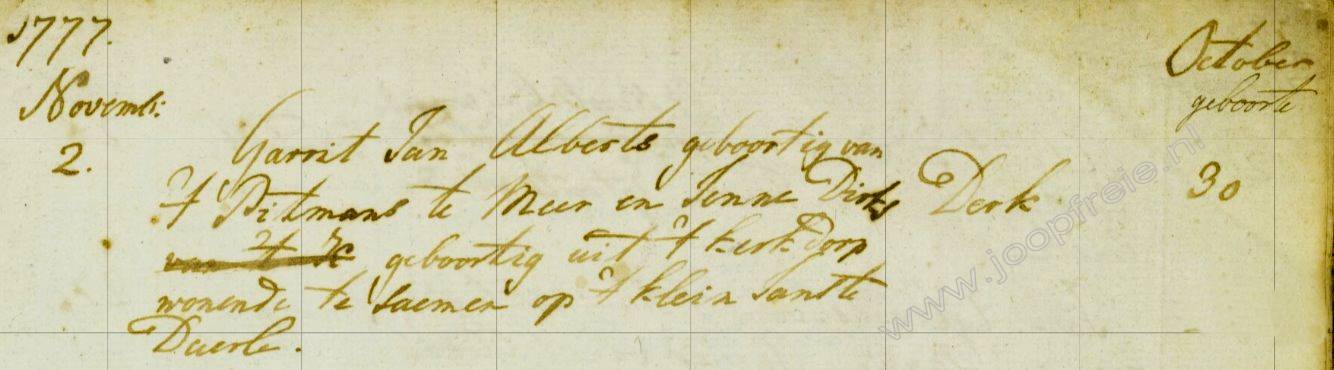 1777.
October
geboorte
Novemb:
2.
Garrit Jan Alberts geboortig van
't Pitmans te Meer en Jenne Dirks Derk 30
van 't
geboortig uit 't kerk dorp
wonende te saemen op 't klein Sandte
Daerle.
www.joopfreie.nl